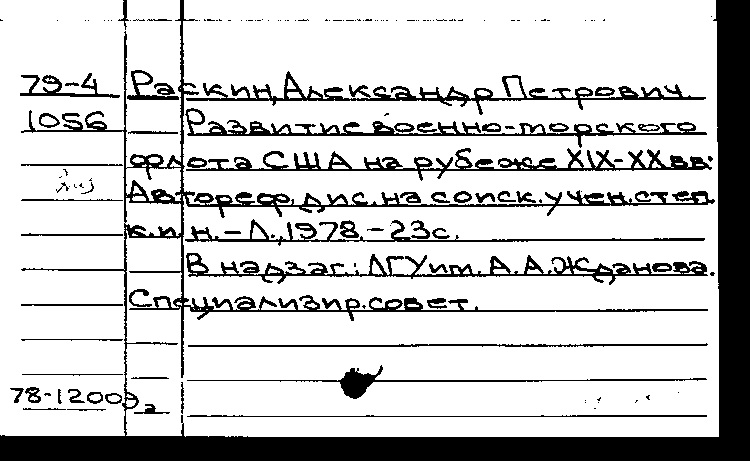 79-4 Раскин, Александр Петрович.
1056 Развитие военно-морского
флота США на рубеже XIX-XX вв.
Автореф. дис. на соиск. учен. степ.
к.и.н. - Л., 1978. - 23с.
В надзаг.: ЛГУ им. А.А. Жданова.
Специализир. совет.
78-12009